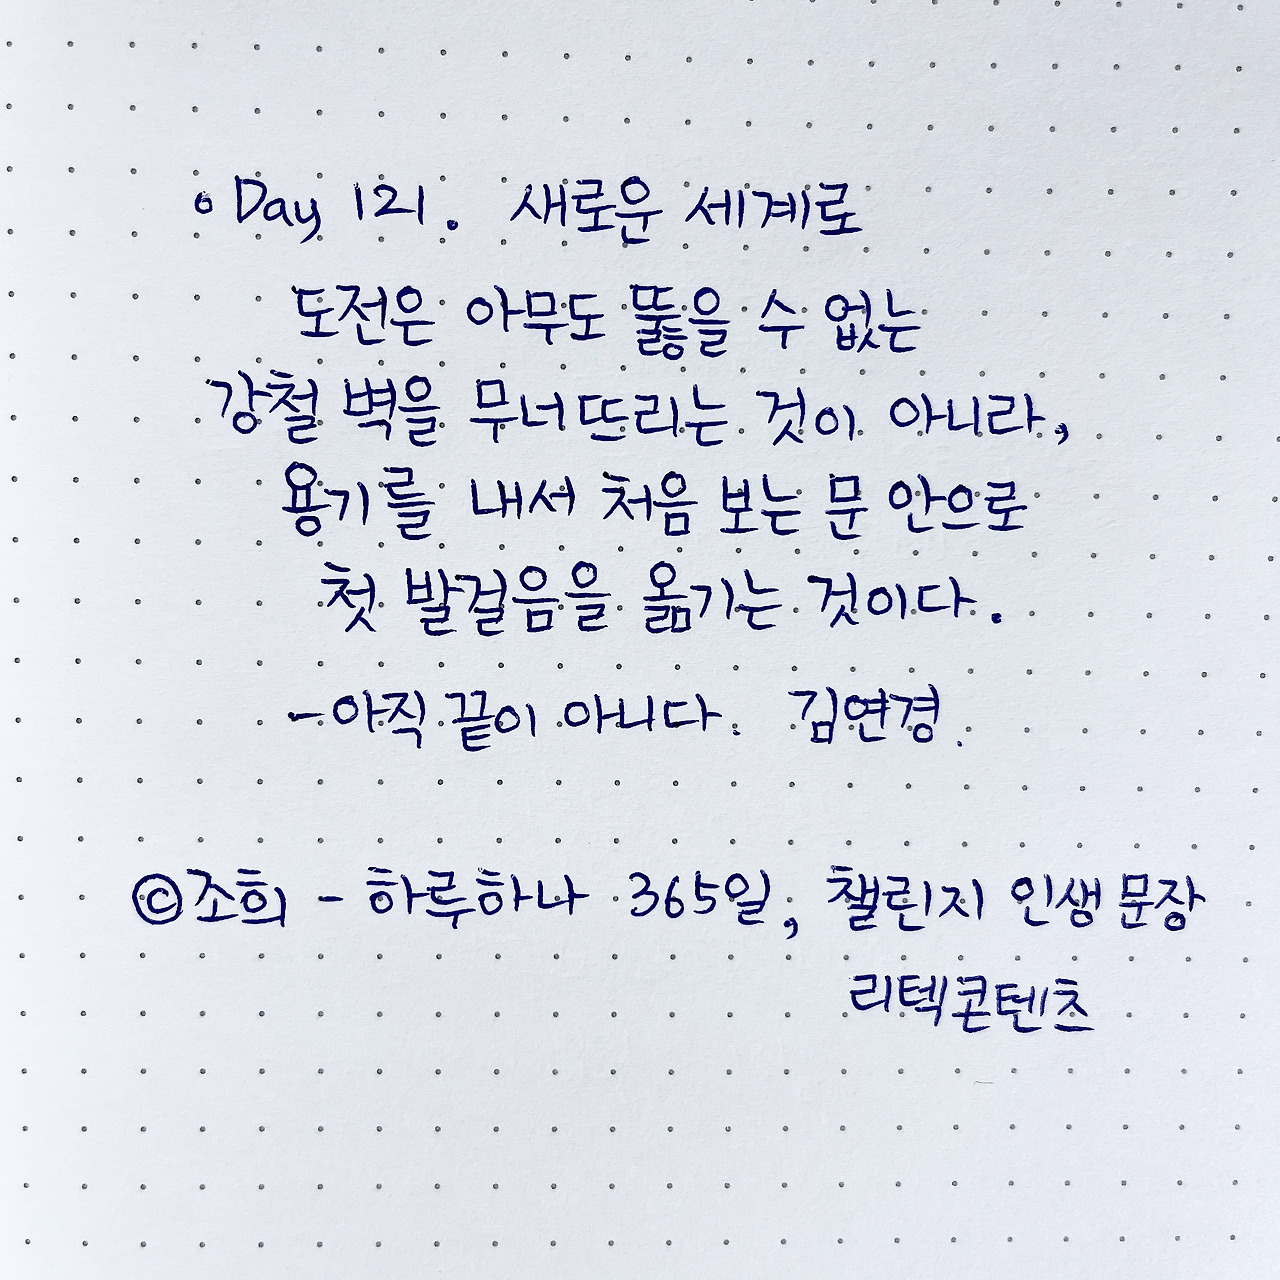 ◦ Day 121. 새로운 세계로
도전은 아무도 뚫을 수 없는
강철 벽을 무너뜨리는 것이 아니라,
용기를 내서 처음 보는 문 안으로
첫 발걸음을 옮기는 것이다.
- 아직 끝이 아니다. 김연경.
©조희 - 하루하나 365일, 챌린지 인생문장
리텍콘텐츠